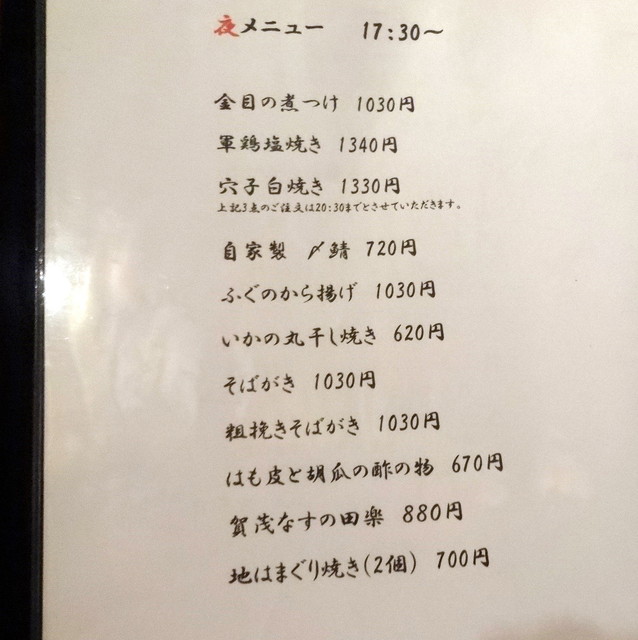 夜メニュー 17:30～
金目の煮つけ 1030円
軍鶏塩焼き 1340円
穴子白焼き 1330円
上記3点のご注文は20:30までとさせていただきます。
自家製 〆鯖 720円
ふぐのから揚げ 1030円
いかの丸干し焼き 620円
そばがき 1030円
粗挽きそばがき 1030円
はも皮と胡瓜の酢の物 670円
賀茂なすの田楽 880円
地はまぐり焼き(2個) 700円